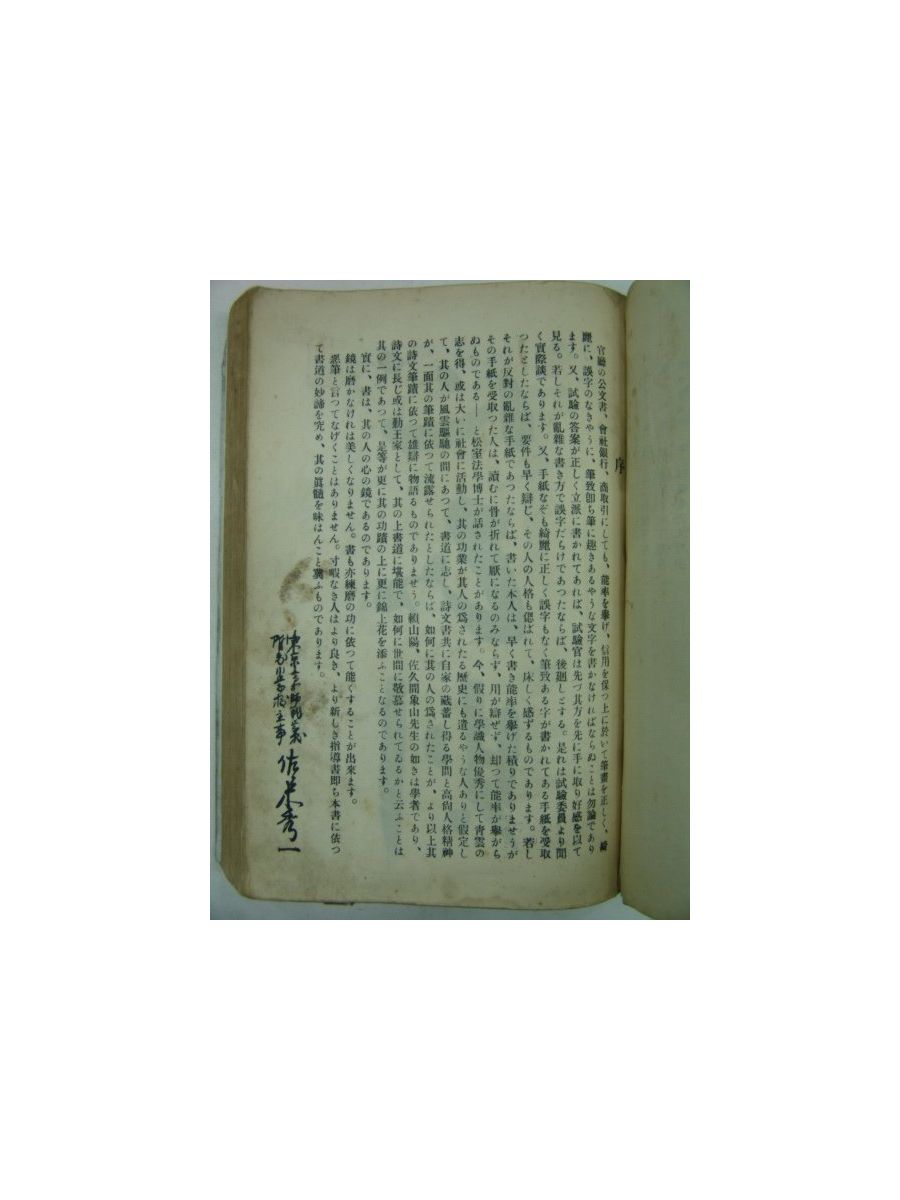 序
官廳の公文書、會社銀行、商取引にしても、能率を擧げ、信用を保つ上に於いて筆畫を正しく、綺
麗に、誤字のなきやうに、筆致卽ち筆に趣きあるやうな文字を書かなければならぬことは勿論であり
ます。又、試驗の答案が正しく立派に書かれてあれば、試驗官は先づ其方を先に手に取り好感を以て
見る。若しそれが亂雜な書き方で誤字だらけであつたならば、後廻しとする。是れは試驗委員より聞
く實際談であります。又、手紙なぞも綺麗に正しく誤字もなく筆致ある字が書かれてある手紙を受取
つたとしたならば、要件も早く辯じ、その人の人格も偲ばれて、床しく感ずるものであります。若し
それが反對の亂雜な手紙であつたならば、書いた本人は、早く書き能率を擧げた積りでありませうが
その手紙を受取つた人は、讀むに骨が折れて厭になるのみならず、用が辯ぜず、却つて能率が擧がら
ぬものである――と松室法學博士が話されたことがあります。今、假りに學識人物優秀にして靑雲の
志を得、或は大いに社會に活動し、其の功業が其人の爲されたる歷史にも遺るやうな人ありと假定し
て、其の人が風雲驅馳の間にあつて、書道に志し、詩文書共に自家の藏蓄し得る學問と高尙人格精神
が、一面其の筆蹟に依つて流露せられたとしたならば、如何に其の人の爲されたことが、より以上其
の詩文筆蹟に依つて雄辯に物語るものでありませう。賴山陽、佐久間象山先生の如きは學者であり、
詩文に長じ或は勤王家として、其の上書道に堪能で、如何に世間に敬慕せられてゐるかと云ふことは
其の一例であつて、是等が更に其の功蹟の上に更に錦上花を添ふことなるのであります。
實に、書は、其の人の心の鏡であるのであります。
鏡は磨かなければ美しくなりません。書も亦練磨の功に依つて能くすることが出來ます。
惡筆と言つてなげくことはありません。寸暇なき人はより良き、より新しき指導書卽ち本書に依つ
て書道の妙諦を究め、其の眞髓を味はんこと冀ふものであります。
東京
小學校主事 佐 秀一